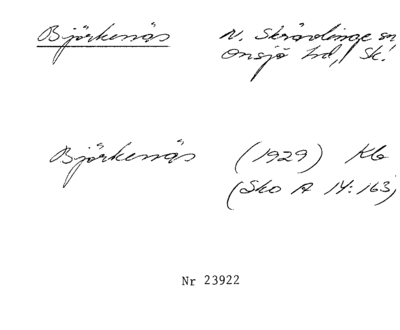 Björkenäs N. Skrävlinge sn
Onsjö hd, Sk.
Björkenäs (1929) Kb
(Sko A 14:163)
Nr 23922